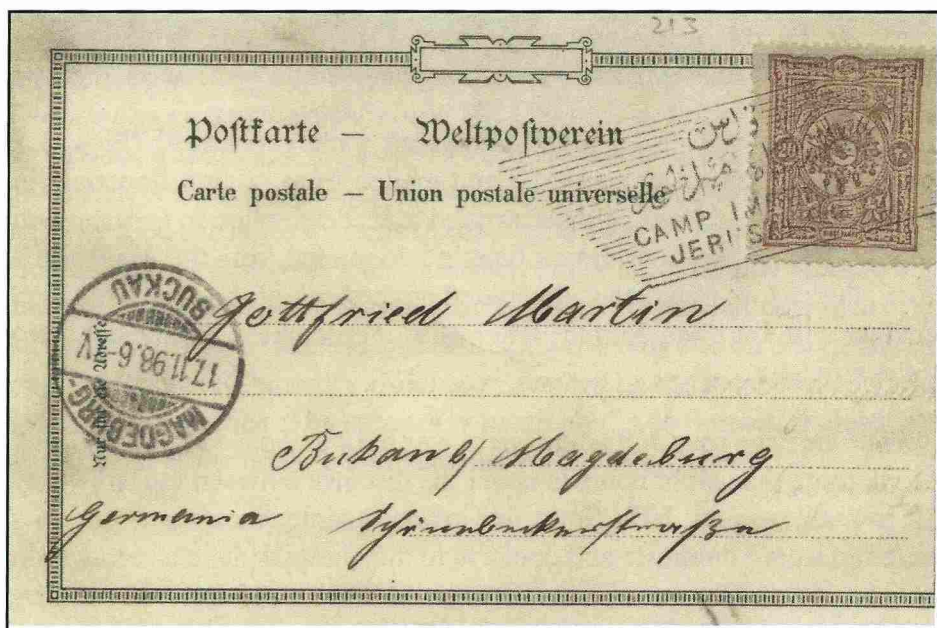 213
Postkarte — Weltpostverein
Carte postale — Union postale universelle
20
CAMP IM
JERUS
MAGDEBURG-
BUCKAU
17.11.98.6-7V
Gottfried Martin
Bukau b/ Magdeburg
Germania Schönebeckerstraße